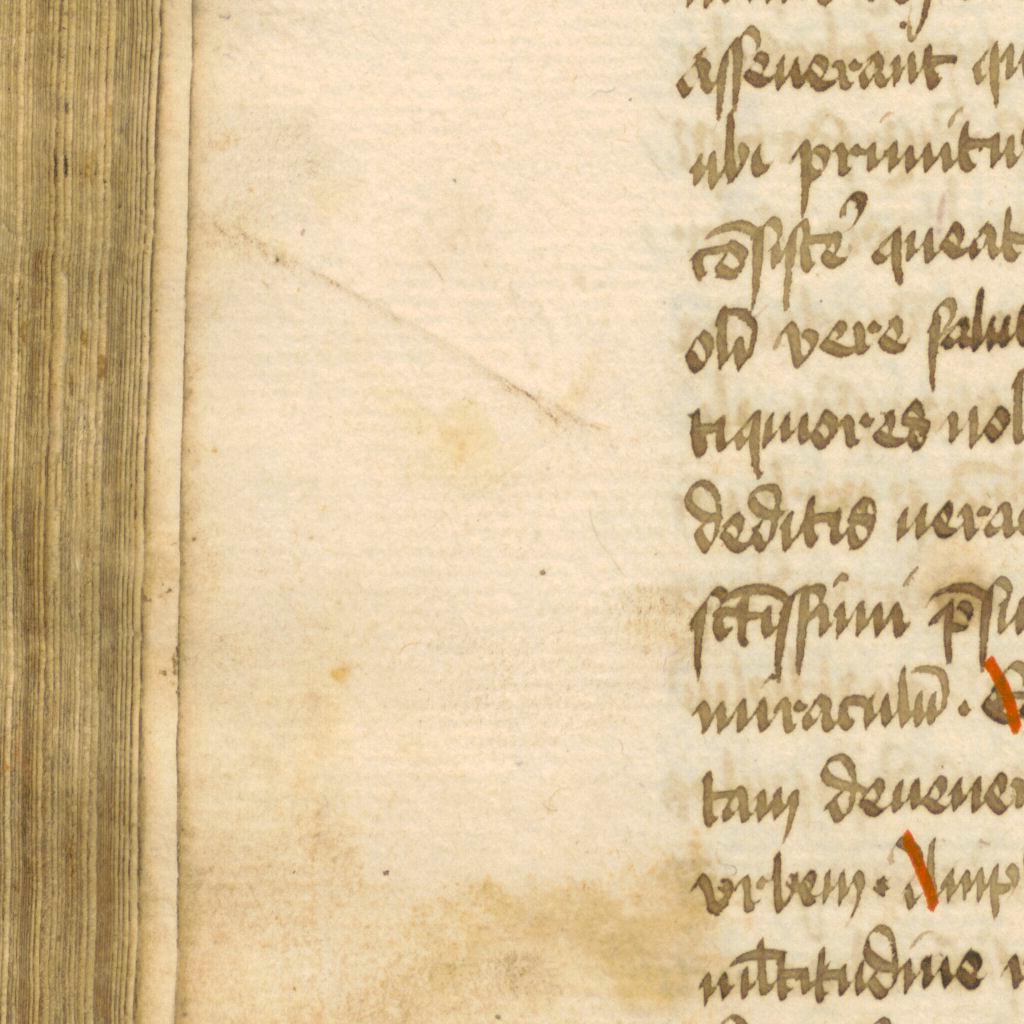 asseuerant qu
ubi primitu
cōsistē queat
olī vere salut
tiquiores nob
deditis uerac
sctīssimi p̄su
miraculū. E
tam deuener
vrbem. Amp
mltitudine